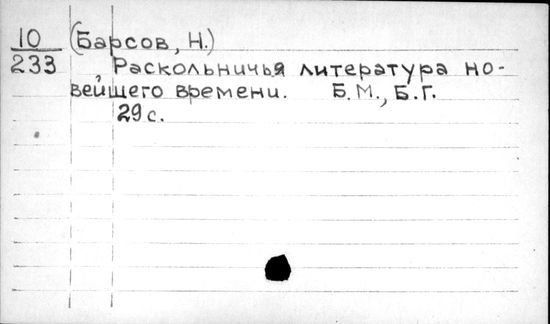 10 (Барсов, Н.)
233 Раскольничья литература но-
вейшего времени. Б.М., Б.Г.
29 с.